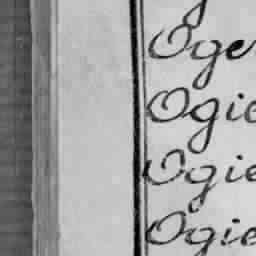 Oge
Ogie
Ogie
Ogie